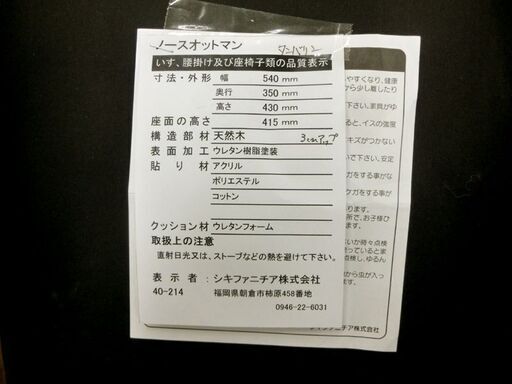 ノースオットマン
いす、腰掛け及び座椅子類の品質表示
寸法・外形 幅 540 mm
奥行 350 mm
高さ 430 mm
座面の高さ 415 mm
構造部材 天然木 3cmアップ
表面加工 ウレタン樹脂塗装
貼り材 アクリル
ポリエステル
コットン
クッション材 ウレタンフォーム
取扱上の注意
直射日光又は、ストーブなどの熱を避けて下さい。
表示者: シキファニチア株式会社
40-214 福岡県朝倉市柿原458番地
0946-22-6031
やすくなり、健康
から少し離したり
下さい。家具がゆ
ると、イスの強度
キズがつかない
いで下さい。安定
ガをする事がな
ケガをする事が
ります。
所で、お子様ひ
ります。
いか時々点検
っていると家
点検し、ゆるん
から虫が入っ
ます。
シキファニチア株式会社